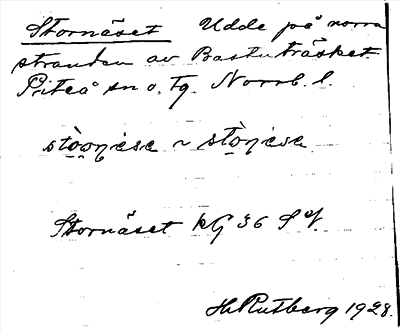 Stornäset Udde på norra
stranden av Bastuträsket
Piteå sn o. tg. Norrb. l.
Stornäset kG 36 S
H. Rutberg 1928.